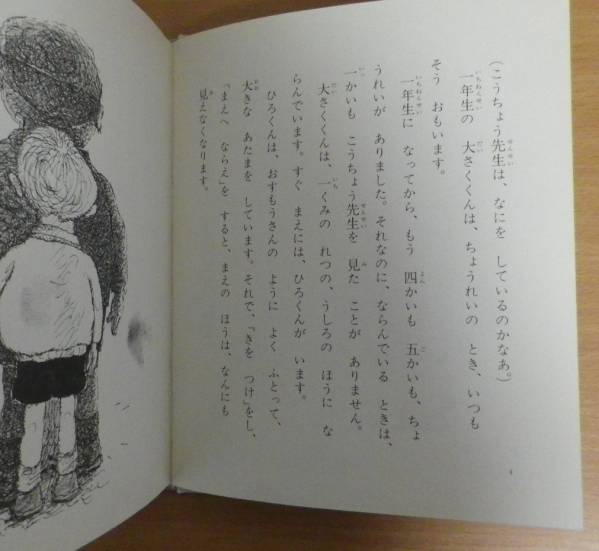 （こうちょう先生は、なにを しているのかなあ。）
一年生の 大さくくんは、ちょうれいの とき、いつも
そう おもいます。
一年生に なってから、もう 四かいも 五かいも、ちょ
うれいが ありました。それなのに、ならんでいる ときは、
一かいも こうちょう先生を 見た ことが ありません。
大さくくんは、一くみの れつの、うしろの ほうに な
らんでいます。すぐ まえには、ひろくんが います。
ひろくんは、おすもうさんの ように よく ふとって、
大きな あたまを しています。それで、「きを つけ」をし、
「まえへ ならえ」を すると、まえの ほうは、なんにも
見えなくなります。
4